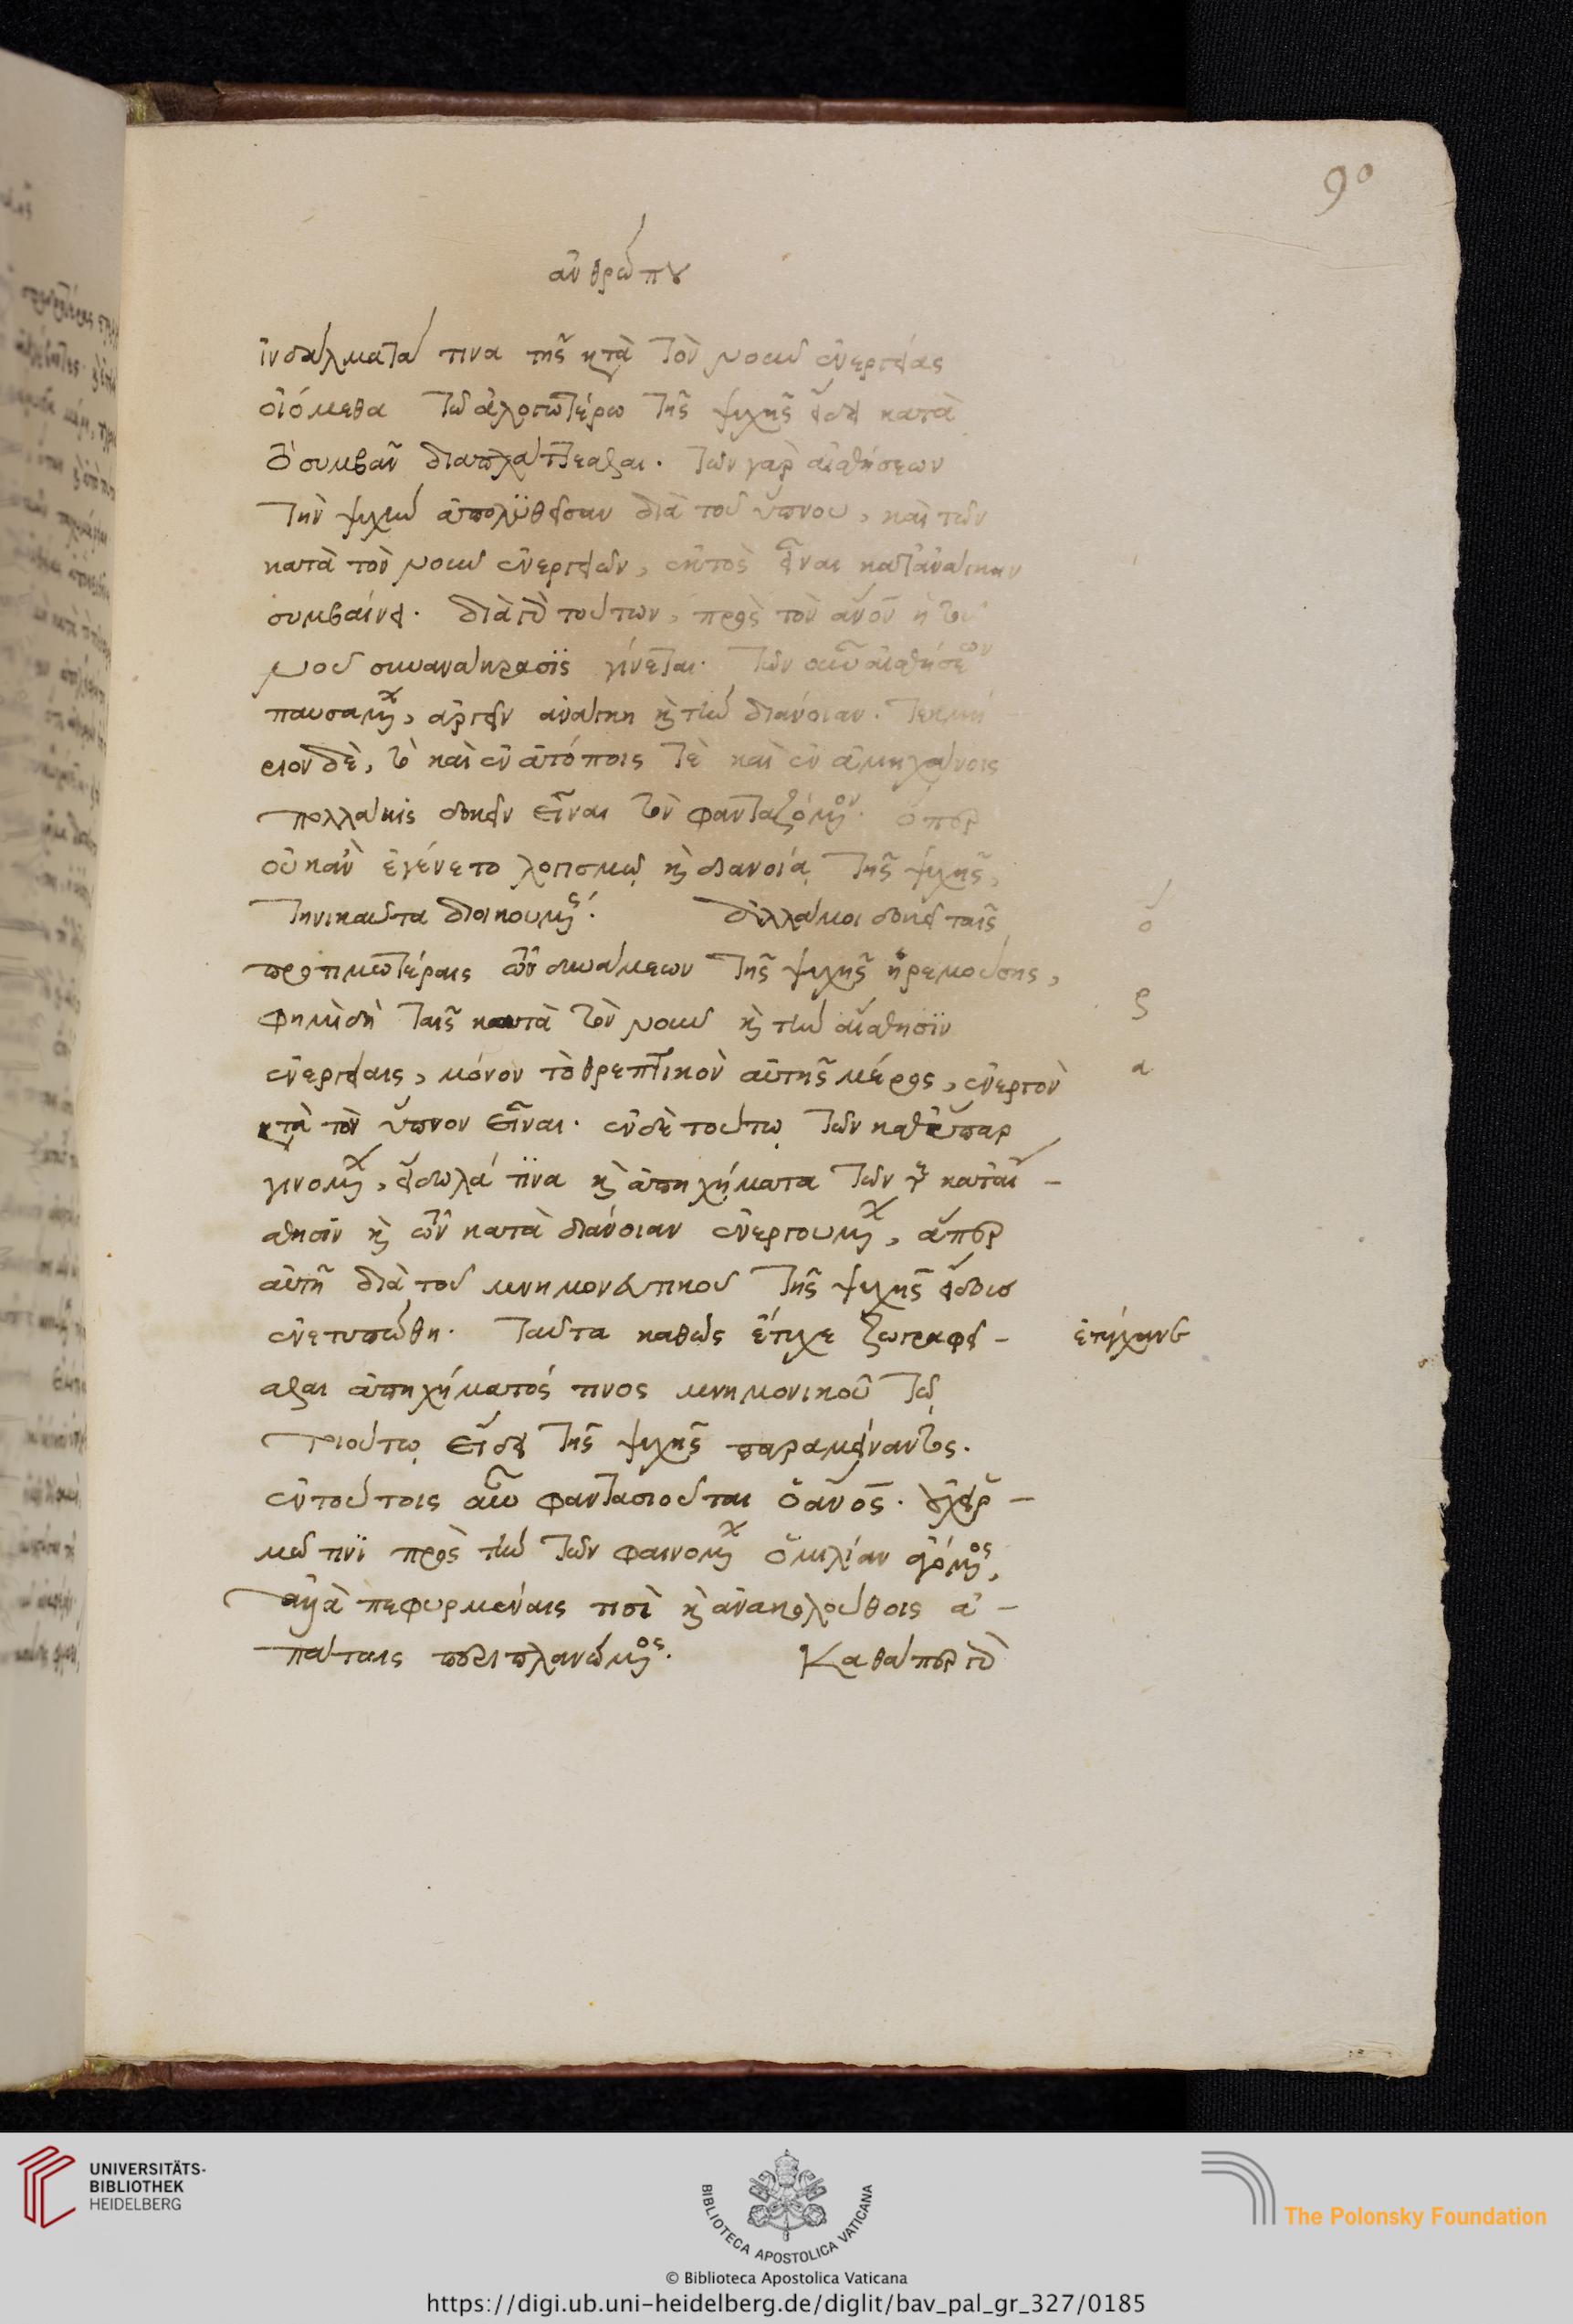 90
ἀνθρώπου
ἰνδάλματά τινα τῆς κατὰ τὸν νοῦν ἐνεργείας
οἰόμεθα τῷ ἀλογωτέρῳ τῆς ψυχῆς εἴδει κατὰ
τὸ συμβὰν διαπλάττεσθαι. τῶν γὰρ αἰσθήσεων
τὴν ψυχὴν ἀπολυθεῖσαν διὰ τοῦ ὕπνου, καὶ τῶν
κατὰ τὸν νοῦν ἐνεργειῶν, ἐκτὸς εἶναι κατ' ἀνάγκην
συμβαίνει. διὰ γὰρ τούτων, πρὸς τὸν ἄνον ἡ τοῦ
νοῦ συνανάκρασις γίνεται. τῶν οὖν αἰσθήσεων
παυσαμένων, ἀργεῖν ἀνάγκη καὶ τὴν διάνοιαν. τεκμή
ριον δὲ, τὸ καὶ ἐν ἀτόποις τὲ καὶ ἐν ἀμηχάνοις
πολλάκις δοκεῖν εἶναι τὸν φανταζόμενον. ὅπερ
οὐκ ἂν ἐγένετο λογισμῷ καὶ διανοίᾳ τῆς ψυχῆς,
τηνικαῦτα διοικουμένης. ἀλλά μοι δοκεῖ ταῖς
προτιμωτέραις τῶν δυνάμεων τῆς ψυχῆς ἠρεμούσης,
φημὶ δὴ ταῖς κατὰ τὸν νοῦν καὶ τὴν αἴσθησιν
ἐνεργείαις, μόνον τὸ θρεπτικὸν αὐτῆς μέρος, ἐνεργὸν
κατὰ τὸν ὕπνον εἶναι. ἐν δὲ τούτῳ τῶν καθ' ὕπαρ
γινομένων, εἴδωλά τινα καὶ ἀπηχήματα τῶν τε κατ' αἴ-
σθησιν καὶ τῶν κατὰ διάνοιαν ἐνεργουμένων, ἅπερ
αὐτῇ διὰ τοῦ μνημονευτικοῦ τῆς ψυχῆς εἴδους
ἐνετυπώθη. ταῦτα καθὼς ἔτυχε ζωγραφεῖ-
σθαι ἀπηχήματός τινος μνημονικοῦ τῷ
τοιούτῳ εἴδει τῆς ψυχῆς παραμείναντος.
ἐν τούτοις οὖν φαντασιοῦται ὁ ἄνος. οὐχ εἱρ-
μῷ τινὶ πρὸς τὴν τῶν φαινομένων ὁμιλίαν ἀγόμενος,
ἀλλὰ πεφυρμέναις τισὶ καὶ ἀνακολούθοις ἀ-
πάταις περιπλανώμενος. Καθάπερ γὰρ
ο
ρ
α
ἐτύγχανε
UNIVERSITÄTS-
BIBLIOTHEK
HEIDELBERG
BIBLIOTECA APOSTOLICA VATICANA
© Biblioteca Apostolica Vaticana
The Polonsky Foundation
https://digi.ub.uni-heidelberg.de/diglit/bav_pal_gr_327/0185